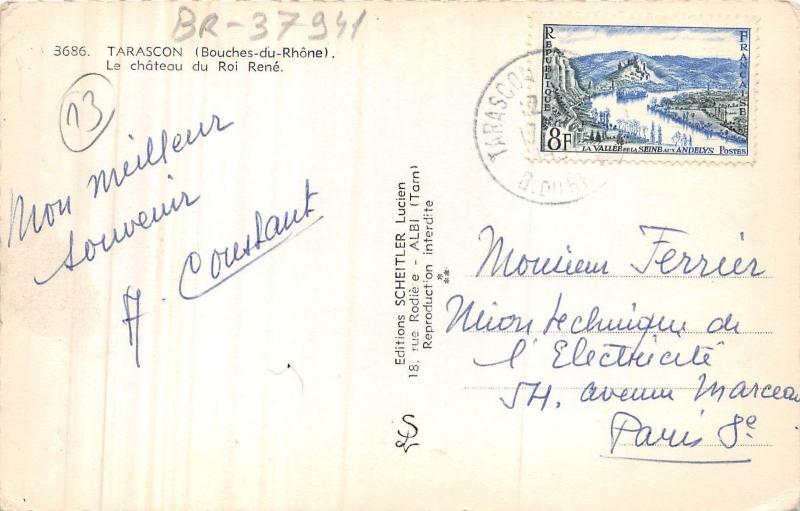 BR-37941
3686. TARASCON (Bouches-du-Rhône).
Le château du Roi René.
13
Mon meilleur
souvenir
A. Constant
Editions SCHEITLER Lucien
18, rue Rodière - ALBI (Tarn)
Reproduction interdite
REPUBLIQUE
FRANÇAISE
8F
LA VALLÉE DE LA SEINE AUX ANDELYS POSTES
TARASCON
B. DU RH
Monsieur Ferrier
Union technique de
l'Electricité
54, avenue Marceau
Paris 8e